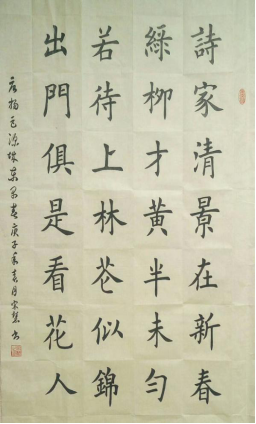 詩家清景在新春
綠柳才黃半未勻
若待上林苍似錦
出門俱是看花人
唐楊巨源城東早春庚子年